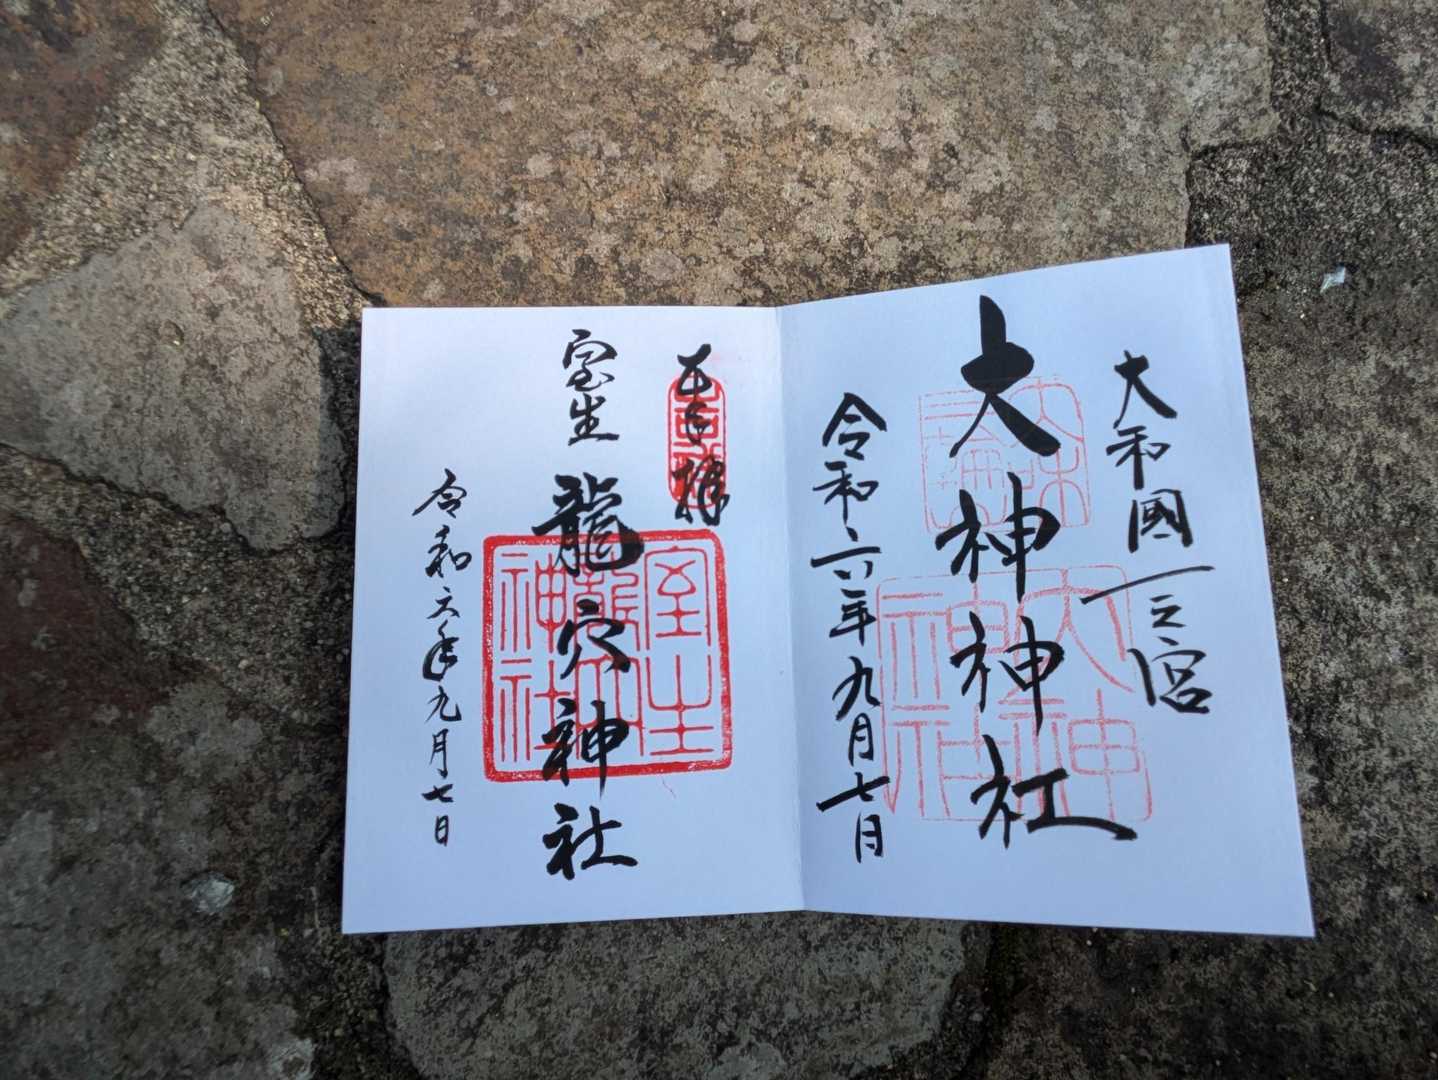 大和國一之宮
大神神社
大三
味輪
大神
神社
令和六年九月七日
奉拝
室生龍穴神社
室生
龍穴
神社
令和六年九月七日